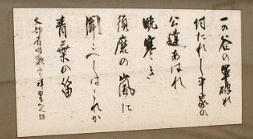 一の谷の軍破れ
討たれし平家の
公達あはれ
暁寒き
須磨の嵐に
聞こえしはこれか
青葉の笛